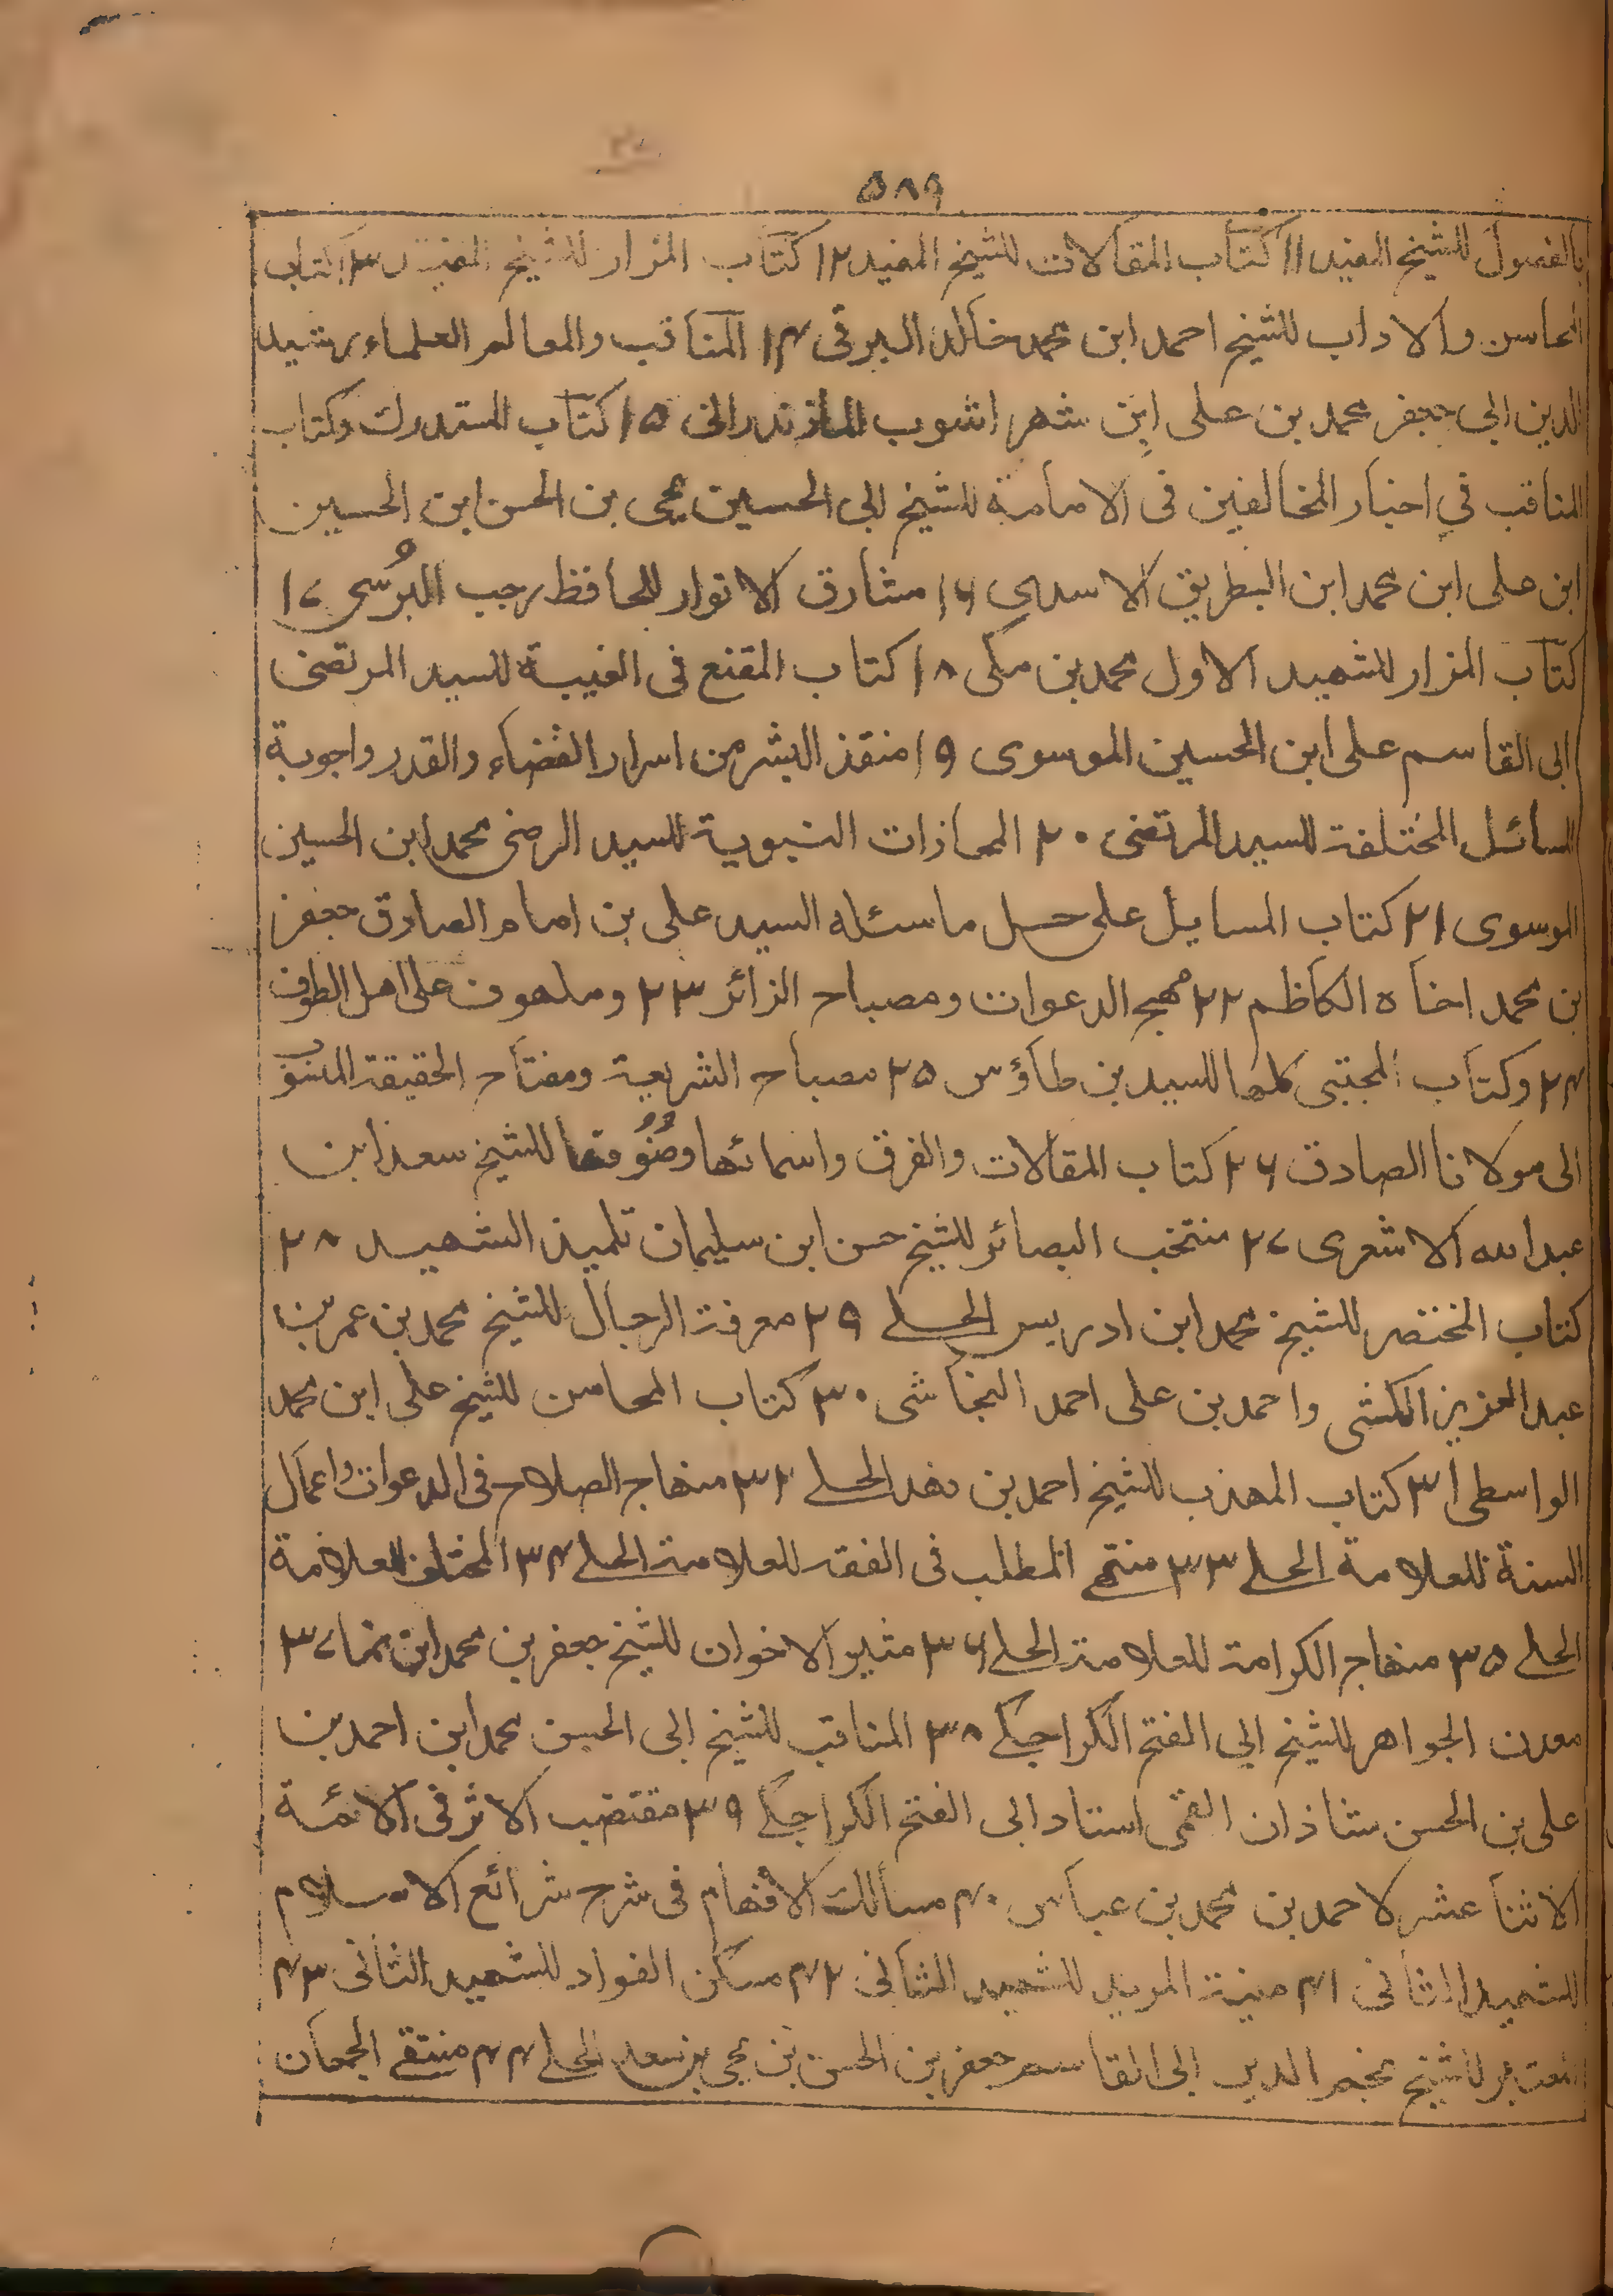 ٥٨٩
بالفصول للشيخ المفيد ١١ كتاب المقالات للشيخ المفيد ١٢ كتاب المزار للشيخ المفيد ١٣ كتاب
المحاسن والاداب للشيخ احمد ابن محمد خالد البرقى ١٤ المناقب والمعالم العلماء رشيد
الدين ابي جعفر محمد بن على ابن شهر اشوب المازندرانى ١٥ كتاب المستدرك وكتاب
المناقب في اخبار المخالفين فى الامامة للشيخ ابى الحسين يحيى بن الحسن ابن الحسين
ابن على ابن محمد ابن البطريق الاسدى ١٦ مشارق الانوار للحافظ رجب البرسى ١٧
كتاب المزار للشهيد الاول محمد بن مكى ١٨ كتاب المقنع فى الغيبة للسيد المرتضى
ابى القاسم على ابن الحسين الموسوى ١٩ منقذ البشر من اسرار القضاء والقدر واجوبة
المسائل المختلفة للسيد المرتضى ٢٠ المجازات النبوية للسيد الرضى محمد ابن الحسين
الموسوى ٢١ كتاب المسايل على حسل ماسئله السيد على بن امام الصادق جعفر
بن محمد اخاه الكاظم ٢٢ مهج الدعوات ومصباح الزائر ٢٣ وملهوف على اهل الطوف
٢٤ وكتاب المجتبى كلها للسيد بن طاؤس ٢٥ مصباح الشريعة ومفتاح الحقيقة المنسوب
الى مولانا الصادق ٢٦ كتاب المقالات والفرق واسمائها وصنوفها للشيخ سعد ابن
عبد الله الاشعرى ٢٧ منتخب البصائر للشيخ حسن ابن سليمان تلميذ الشهيد ٢٨
كتاب المختصر للشيخ محمد ابن ادريس الحلے ٢٩ معرفة الرجال للشيخ محمد بن عمر بن
عبد العزيز الكشى واحمد بن على احمد النجاشى ٣٠ كتاب المحاسن للشيخ على ابن محمد
الواسطى ٣١ كتاب المهذب للشيخ احمد بن فهد الحلے ٣٢ منهاج الصلاح فى الدعوات واعمال
السنة للعلامة الحلے ٣٣ منتهى المطلب فى الفقه للعلامة الحلے ٣٤ المختلف للعلامة
الحلے ٣٥ منهاج الكرامة للعلامة الحلے ٣٦ مثير الاخوان للشيخ جعفر بن محمد ابن نما ٣٧
معدن الجواهر للشيخ ابي الفتح الكراجكے ٣٨ المناقب للشيخ ابى الحسن محمد ابن احمد بن
على بن الحسن شاذان القمى استاد ابى الفتح الكراجكے ٣٩ مقتضب الاثر فى الائمة
الاثنا عشر لاحمد بن محمد بن عباس ٤٠ مسالك الافهام فى شرح شرائع الاسلام
للشهيد الثانى ٤١ منية المريد للشهيد الثانى ٤٢ مسكن الفواد للشهيد الثانى ٤٣
المعتبر للشيخ نجم الدين ابى القاسم جعفر بن الحسن بن يحيى بن سعد الحلے ٤٤ منتقے الجمعان